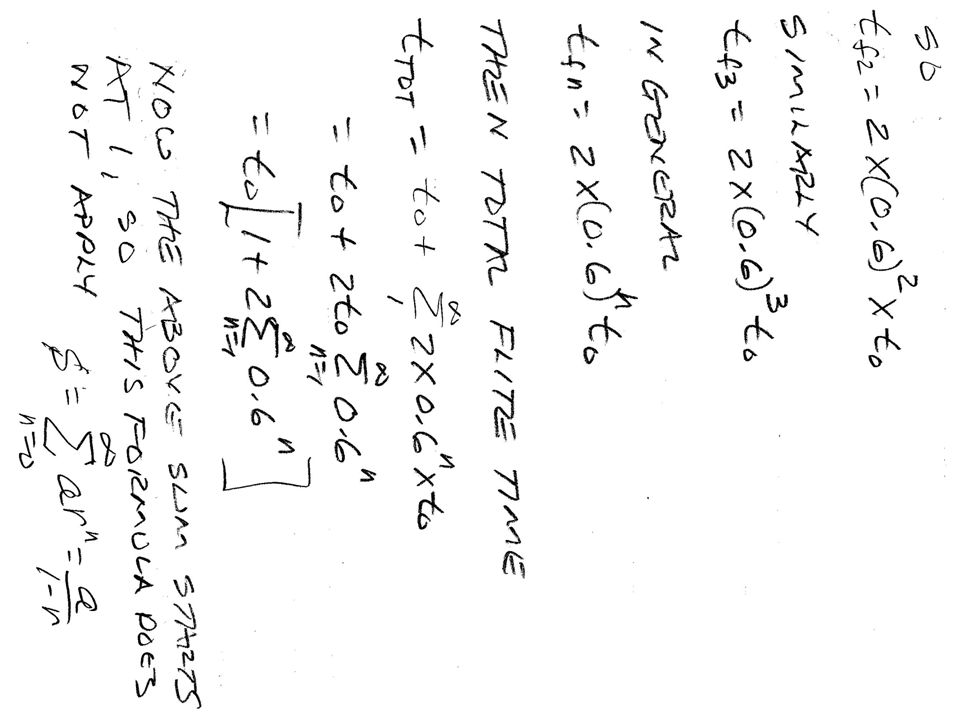 SO
t_f2 = 2 x (0.6)^2 x t_0
SIMILARLY
t_f3 = 2 x (0.6)^3 t_0
IN GENERAL
t_fn = 2 x (0.6)^n t_0
THEN TOTAL FLITE TIME
t_TOT = t_0 + Σ_1^∞ 2 x 0.6^n x t_0
= t_0 + 2t_0 Σ_{n=1}^∞ 0.6^n
= t_0 [1 + 2 Σ_{n=1}^∞ 0.6^n]
NOW THE ABOVE SUM STARTS
AT 1, SO THIS FORMULA DOES
NOT APPLY S = Σ_{n=0}^∞ ar^n = a/(1-r)